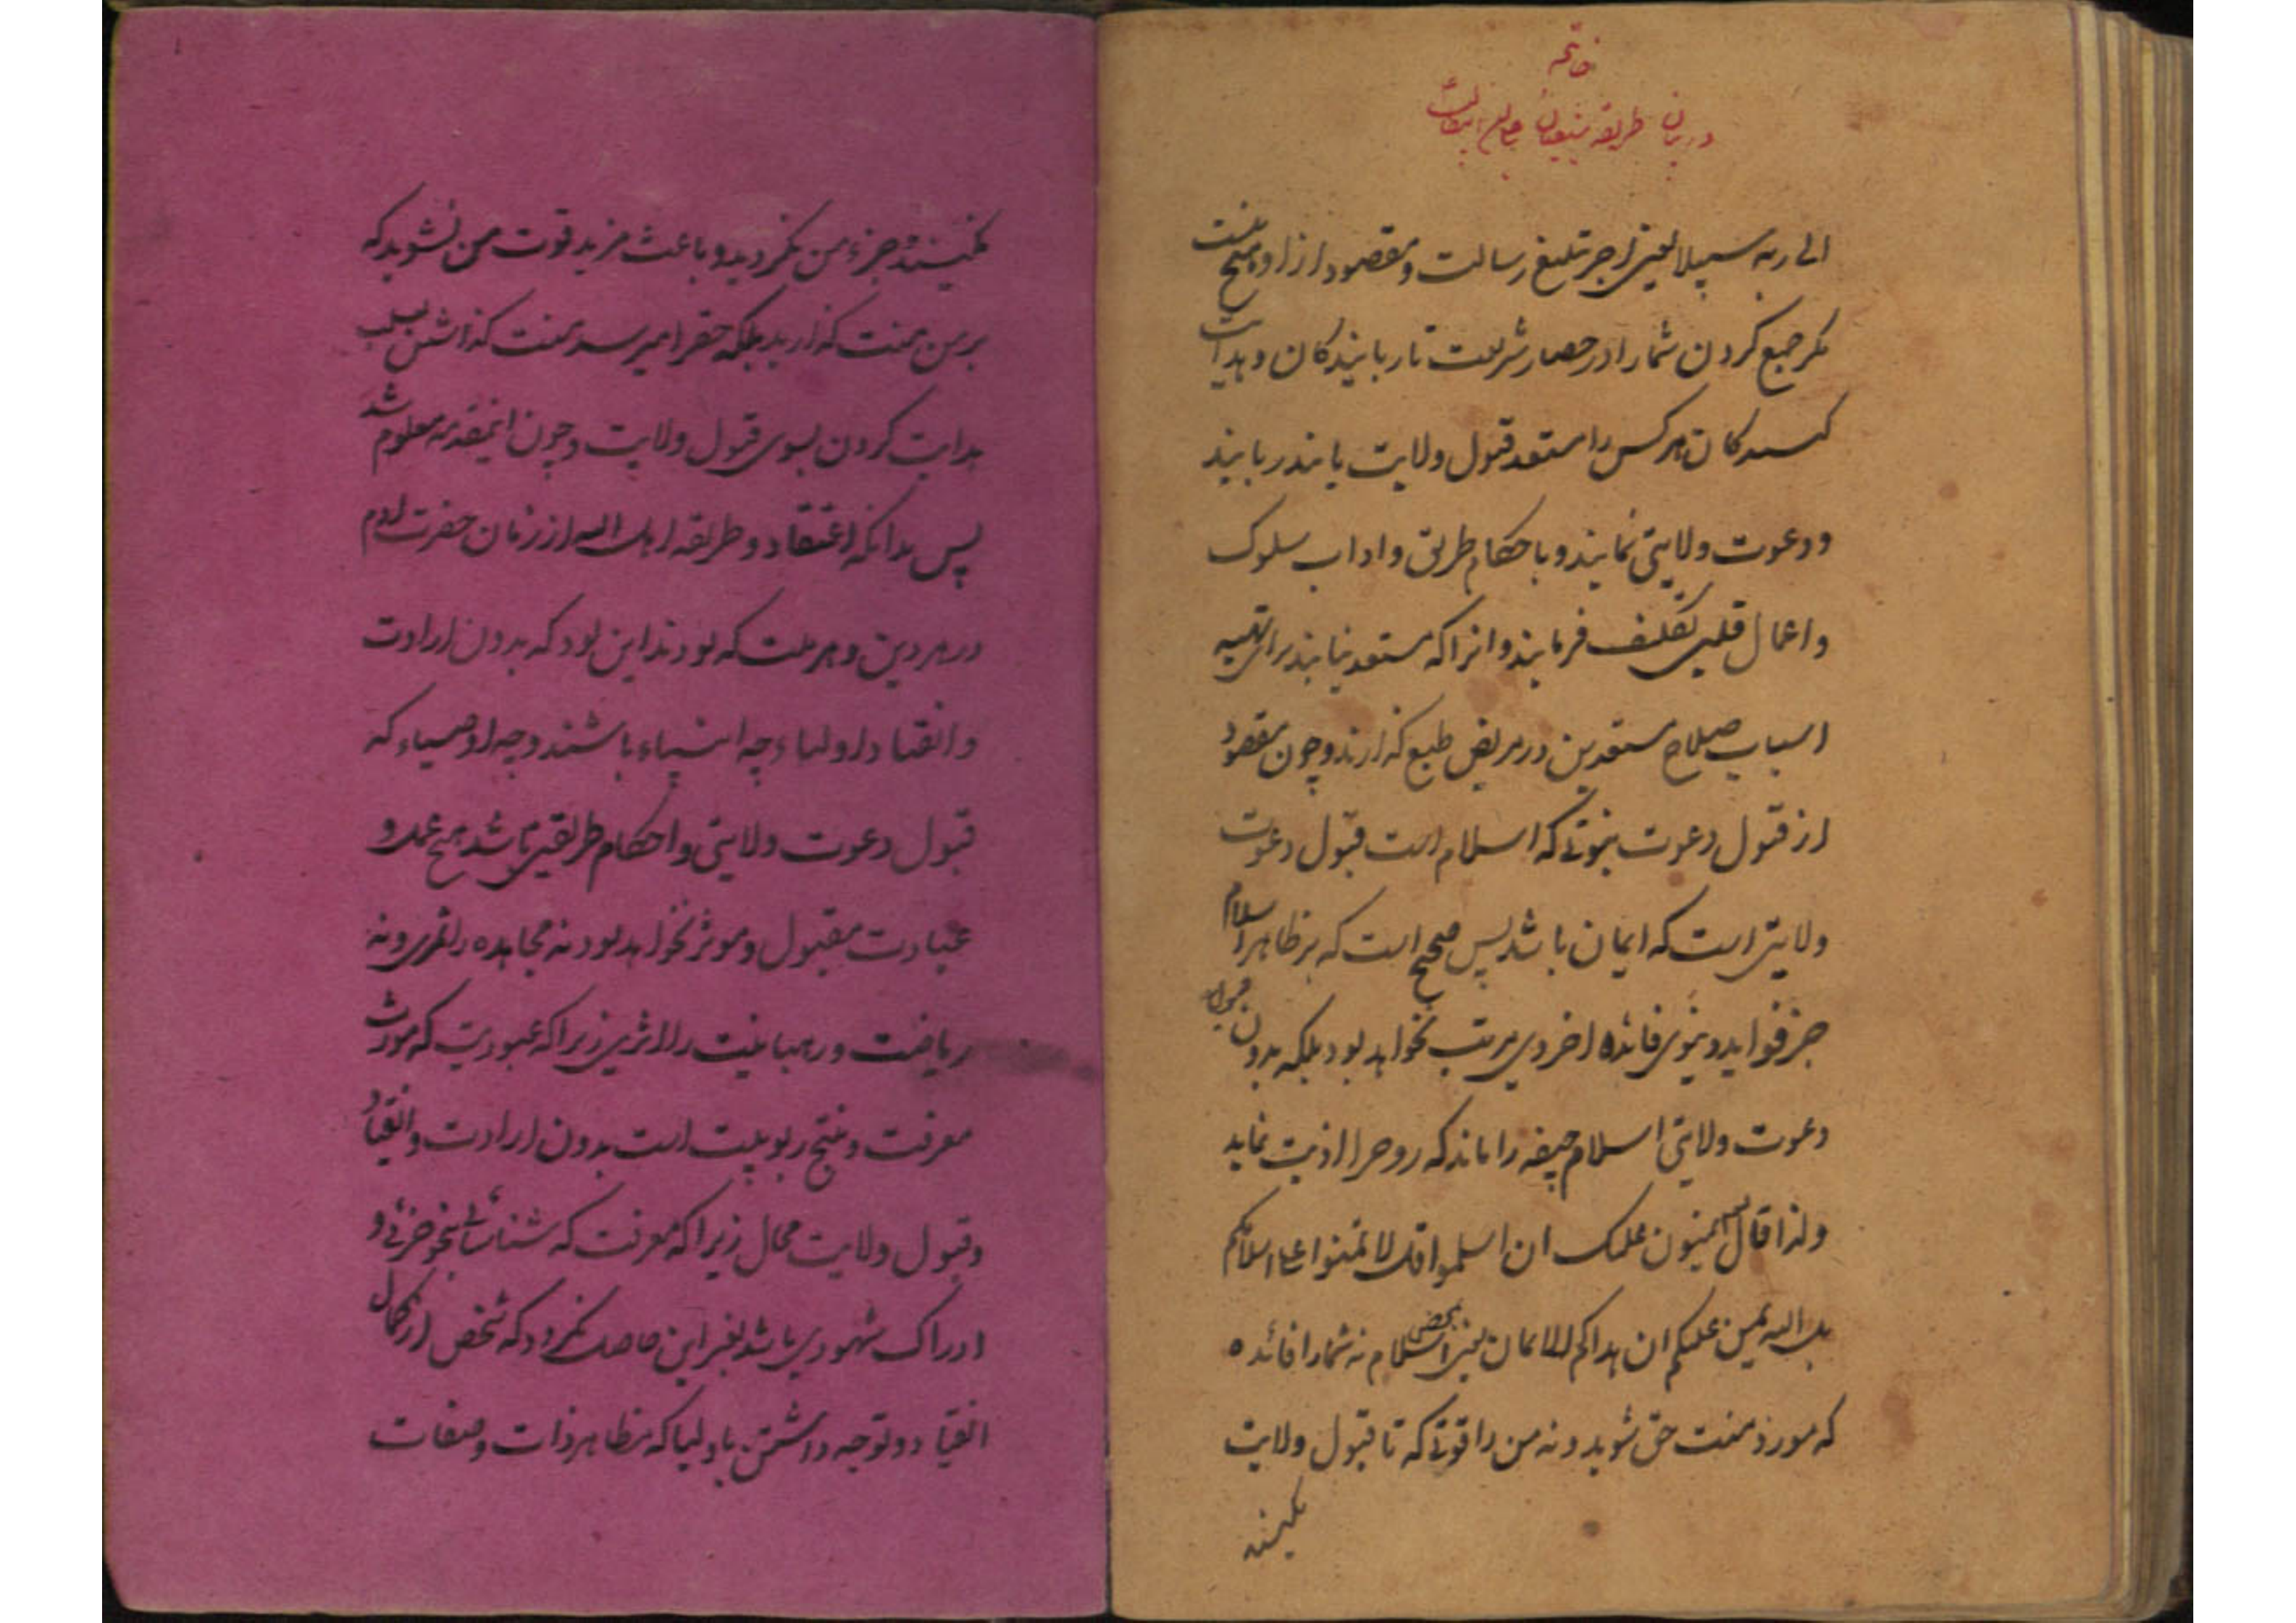 خاتمه
در بیان طریقه
الی ربه سبیلا یعنی اجر تبلیغ رسالت و مقصود از او هیچ نیست
مکر جمع کردن شما را در حصار شریعت تا ربایندکان و هدایت
کنندکان هرکس را مستعد قبول ولایت یابند ربایند
و دعوت ولایتی نمایند و باحکام طریق و اداب سلوک
و اعمال قلبی تکلیف فرمایند و انرا که مستعد نیابند برای تهیه
اسباب صلاح مستعدین در مربض طبع کذارند و چون مقصود
از قبول دعوت نبوتی که اسلام است قبول دعوت
ولایتی است که ایمان باشد پس صحیح است که بر ظاهر اسلام
جز فواید دنیوی فائده اخروی مرتب نخواهد بود بلکه بدون قبول
دعوت ولایتی اسلام جیفه را ماند که روحرا اذیت نماید
ولذا قال یمنون علیک ان اسلموا قل لا تمنوا علی اسلامکم
بل الله یمن علیکم ان هداکم للایمان یعنی بمحض اسلام نه شما را فائده
که مورد منت حق شوید و نه من را قوتی که تا قبول ولایت
نکنید
نکنید جزء من نکردید و باعث مزید قوت من نشوید که
بر من منت کذارید بلکه حقرا میرسد منت کذاشتن بسبب
هدایت کردن بسوی قبول ولایت و چون اینمقدمه معلوم شد
پس بدانکه اعتقاد و طریقه اهل الله از زمان حضرت ادم
در هر دین و هر ملت که بودند این بود که بدون ارادت
و انقیاد اولیاء چه انبیاء باشند و چه اوصیاء که
قبول دعوت ولایتی و احکام طریقتی باشد هیچ عمل و
عبادت مقبول و موثر نخواهد بود نه مجاهده را ثمری و نه
ریاضت و رهبانیت را اثری زیرا که عبودیت که مورث
معرفت و منتج ربوبیت است بدون ارادت و انقیاد
و قبول ولایت محال زیرا که معرفت که شناسائی بنحو جزئی و
ادراک شهودی باشد بغیر این حاصل نکردد که شخص از کمال
انقیاد و توجه داشتن باولیا که مظاهر ذات و صفات